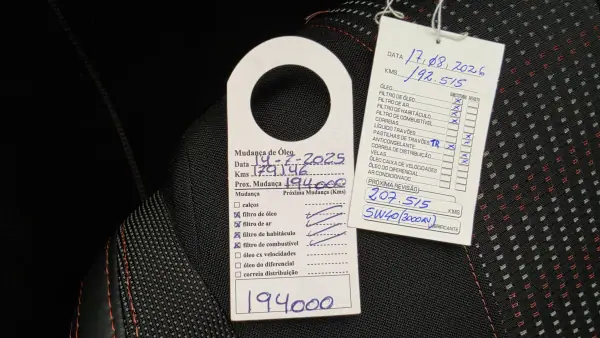 Mudança de Óleo
Data 14-2-2025
Kms 179146
Prox. Mudança 194000
Mudança Próxima Mudança (Kms)
calços
filtro de óleo
filtro de ar
filtro de habitáculo
filtro de combustível
óleo cx velocidades
óleo do diferencial
correia distribuição
194000
DATA 17.08.2026
KMS 192.515
ÓLEO
FILTRO DE ÓLEO
FILTRO DE AR
FILTRO DE HABITÁCULO
FILTRO DE COMBUSTÍVEL
CORREIAS
LÍQUIDO TRAVÕES
PASTILHAS DE TRAVÕES TR
ANTICONGELANTE
CORREIA DE DISTRIBUIÇÃO
VELAS
ÓLEO CAIXA DE VELOCIDADES
ÓLEO DO DIFERENCIAL
AR CONDICIONADO
PRÓXIMA REVISÃO
207.515 KMS
5W40